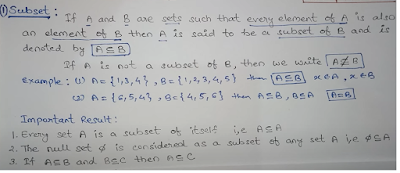 ① Subset : If A and B are sets such that every element of A is also
an element of B then A is said to be a subset of B and is
denoted by A⊆B
If A is not a subset of B, then we write A⊈B
Example : (1) A = {1,3,4} , B = {1,2,3,4,5} then A⊆B x∈A , x∈B
(2) A = {6,5,4} , B = {4,5,6} then A⊆B , B⊆A A=B
Important Result :
1. Every set A is a subset of itself i,e A⊆A
2. The null set ϕ is considered as a subset of any set A i,e ϕ⊆A
3. If A⊆B and B⊆C then A⊆C